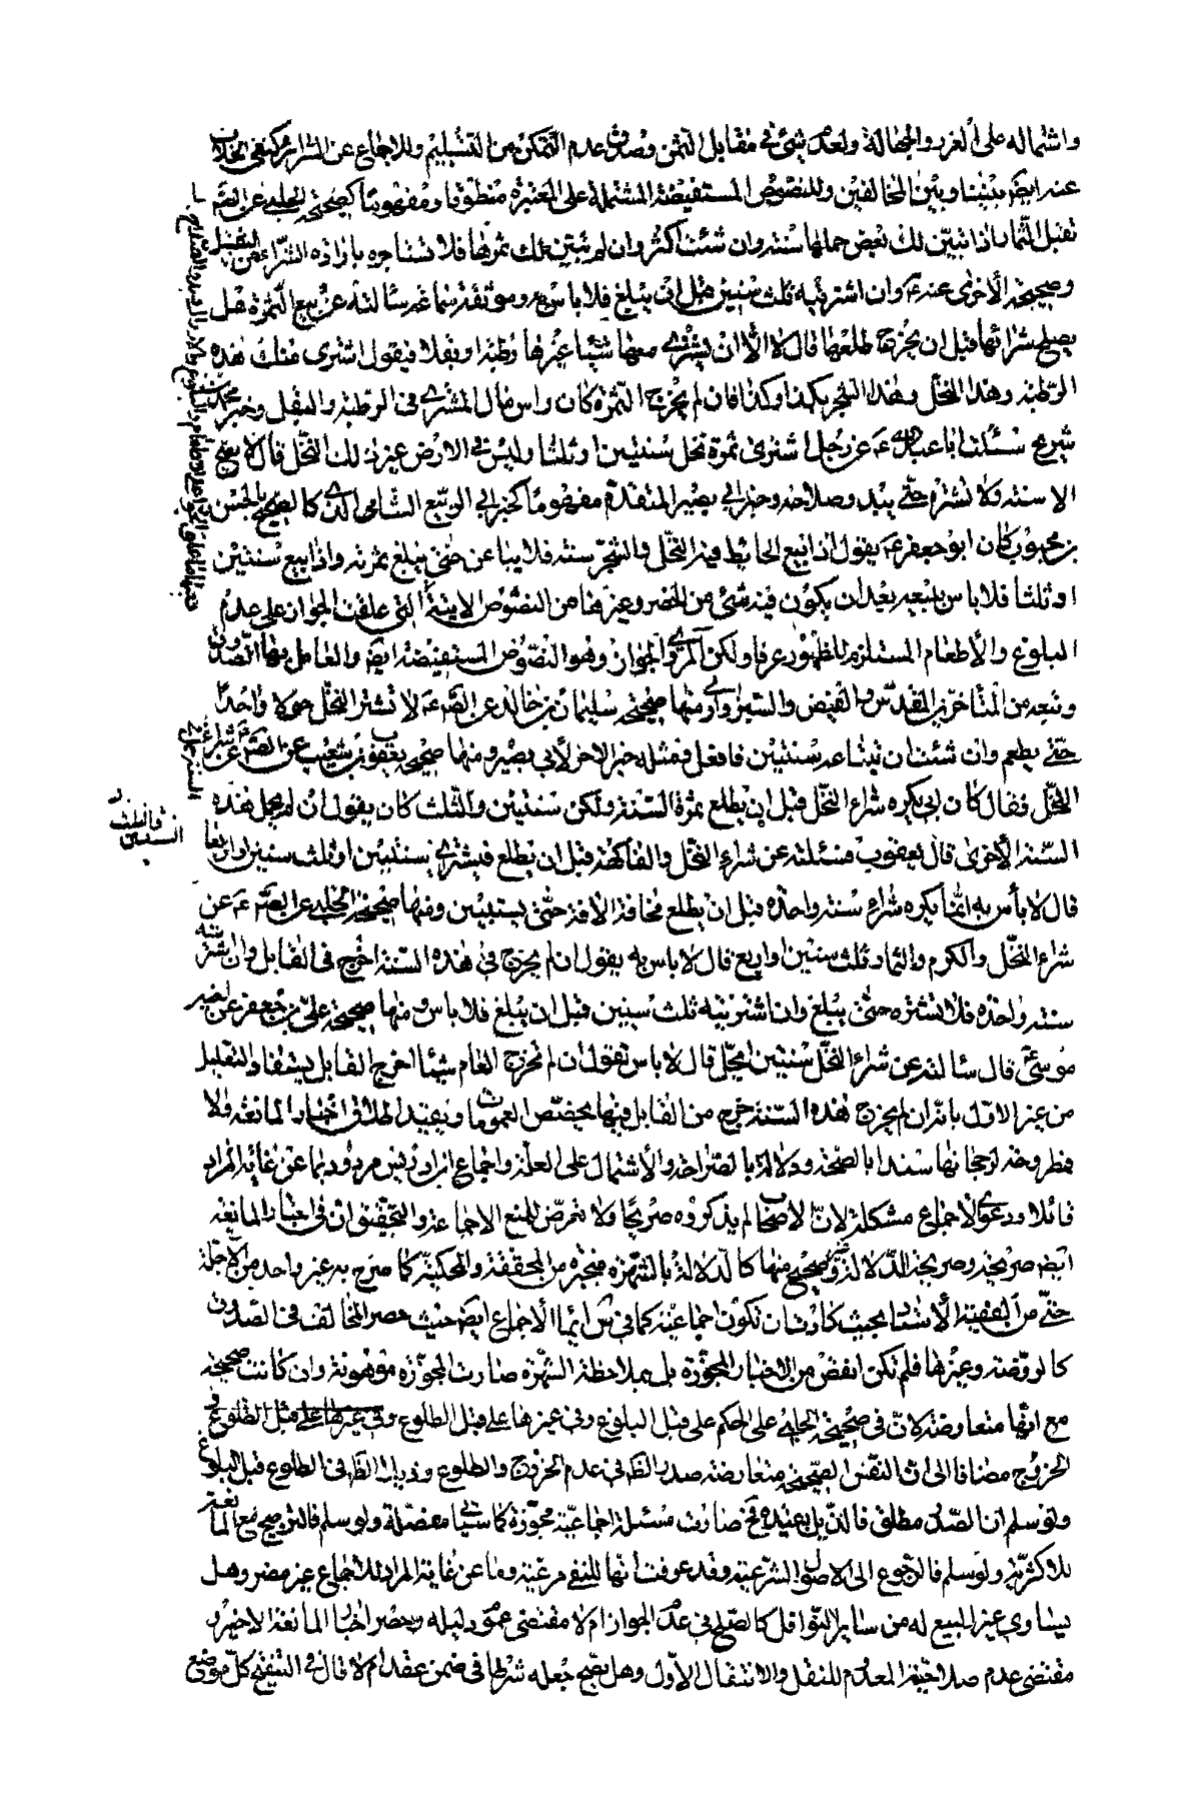 واشتماله على الغرر والجهالة ولعدم شئ في مقابل الثمن وصدق عدم التمكن من التسليم وللاجماع عن السرائر وكنفى الخلاف
عنه ايضا بيننا وبين المخالفين وللنصوص المستفيضة المشتملة على المعتبرة منطوقا ومفهوما كصحيحة الحلبي عن الص
تقبل الثمار اذا تبين لك بعض حملها سنة وان شئت اكثر وان لم يتبين لك ثمرها فلا تستاجره بارادة الشراء من التقبل
وصحيحته الاخرى عنه ع وان اشتريته ثلث سنين قبل ان يبلغ فلا باس وموثقة سماعة سالته عن بيع الثمرة هل
يصلح شرائها قبل ان يخرج طلعها قال لا الا ان يشترى معها شيئا غيرها رطبة او بقلا فيقول اشترى منك هذه
الرطبة وهذا النخل وهذا الشجر بكذا وكذا فان لم يخرج الثمرة كان راس مال المشتري في الرطبة والبقل وخبر
شريح سئلت ابا عبد الله ع عن رجل اشترى ثمرة نخل سنتين او ثلثا وليس في الارض غير ذلك النخل قال لا يصلح
الا سنة ولا تشتره حتى يبدو صلاحه وخبر ابي بصير المتقدة مفهوما كخبر ابي الربيع الشامي الذي كا لصحيح بالحسن
بن محبوب كان ابو جعفر ع يقول اذا بيع الحائط فيه النخل والشجر سنة فلا يباعن حتى يبلغ ثمرته واذا بيع سنتين
او ثلثا فلا باس ببيعه بعد ان يكون فيه شئ من الخضر وغيرها من النصوص الاتية التي علقت الجواز على عدم
البلوغ والاطعام المستلزم للظهور عرفا ولكن المروي الجواز وهو النصوص المستفيضة ايضا والعامل بها الصدوق
وتبعه من المتاخرين المقدس والفيض والسبزواري منها صحيحة سليمان بن خالد عن الص ع لا تشتر النخل حولا واحدا
حتى يطعم وان شئت ان تبتاعه سنتين فافعل فمثله خبر الاخر لابي بصير ومنها صحيح يعقوب بن شعيب عن الص ع عن شراء
النخل فقال كان ابي يكره شراء النخل قبل ان يطلع ثمرة السنة ولكن سنتين والثلث كان يقول ان لم يحمل هذه
السنة الاخرى قال يعقوب فسئلته عن شراء النخل والفاكهة قبل ان يطلع فيشتري سنتين او ثلث سنين او اربعا
قال لا بأس به انما يكره شراء سنة واحدة قبل ان يطلع مخافة الافة حتى يستبين ومنها صحيحة الحلبي عن الص ع عن
شراء النخل والكرم والثمار ثلث سنين او اربع قال لا باس به يقول ان لم يخرج في هذه السنة اخرج في القابل وان اشتريته
سنة واحدة فلا تشتره حتى يبلغ وان اشتريته ثلث سنين قبل ان يبلغ فلا باس ومنها صحيحة علي بن جعفر عن اخيه
موسى ع قال سالته عن شراء النخل سنتين ايحل قال لا باس تقول ان لم يخرج العام شيئا اخرج القابل يستفاد التقليل
من غير الاول بانه ان لم يخرج هذه السنة خرج من القابل فيها يخصص العمومات ويقيد اطلاق اخبار المانعة ولا
مطروحة لرجحانها سندا بالصحة ودلالة بالصراحة والاشتمال على العلة واجماع ابن ادريس مردود بما عن غاية المراد
قائلا ودعوى الاجماع مشكلة لان الاصحاب لم يذكروه صريحا ولا تعرض للمنع الاجماعي والتحقيق ان في اخبار المانعة
ايضا صريحة وصريحة الدلالة وصحيح منها كالدلالة بالشهرة منجبرة من المحققة والمحكية كما صرح به غير واحد من الاجلة
حتى من الفقيه الاستاد بحيث كادت ان تكون اجماعية كما في س ايما الاجماع ايضا حيث حصر المخالف في الصدوق
كالروضة وغيرها فلم تكن انقص من الاخبار المجوزة بل بملاحظة الشهرة صارت المجوزة موهونة وان كانت صحيحة
مع انها متعارضة لان في صحيحة الحلبي على الحكم على قبل البلوغ وفي غيرها على قبل الطلوع وفي غيرها على قبل الطلوع في
الخروج مضافا الى ان النفس الصحيحة متعارضة صدر الظ في عدم الخروج والطلوع وذيلها الظ في الطلوع قبل البلوغ
ولو سلم ان الصدر مطلق فالذيل يقيده فح صارت مسئلة اجماعية مجوزة كما سياتي مفصلة ولو سلم فالترجيح مع المانعة
للاكثرية ولو سلم فالرجوع الى الاصول الشرعية وقد عرفت انها للنفي مرعية وما عن غاية المراد للاجماع غير مضر وهل
يساوي غير البيع له من سائر النواقل كالصلح في عدم الجواز ام لا مقتضى عموم دليله وحصر اخبار المانعة الاخير و
مقتضى عدم صلاحية المعدوم للنقل والانتقال الاول وهل يصح جعله شرطا في ضمن عقد ام لا قال في التنقيح كل موضع
والثلث
السنتين